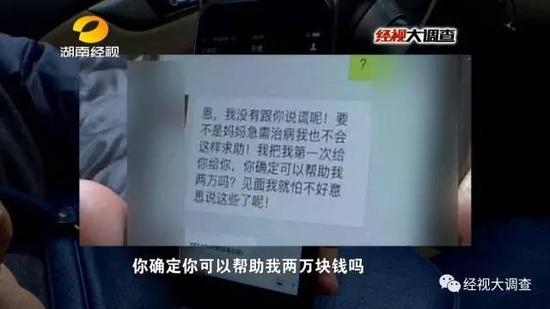 湖南经视
经视大调查
?
恩,我没有跟你说谎呢!要
不是妈妈急需治病我也不会
这样求助!我把我第一次给
你给你、你确定可以帮助我
两万吗?见面我就怕不好意
思说这些了呢!
你确定你可以帮助我两万块钱吗
经视大调查